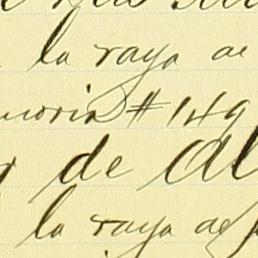 la raya de
moria #149
de Al
la raya de